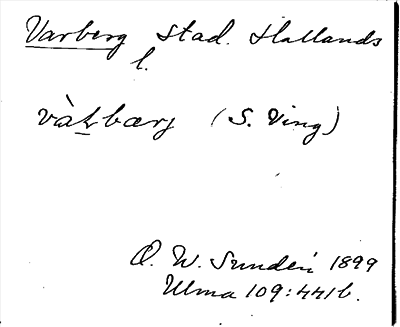 Varberg stad. Hallands
l.
vàtbærj (S. Ving)
O. W. Sundén 1899
Ulma 109:441 b.